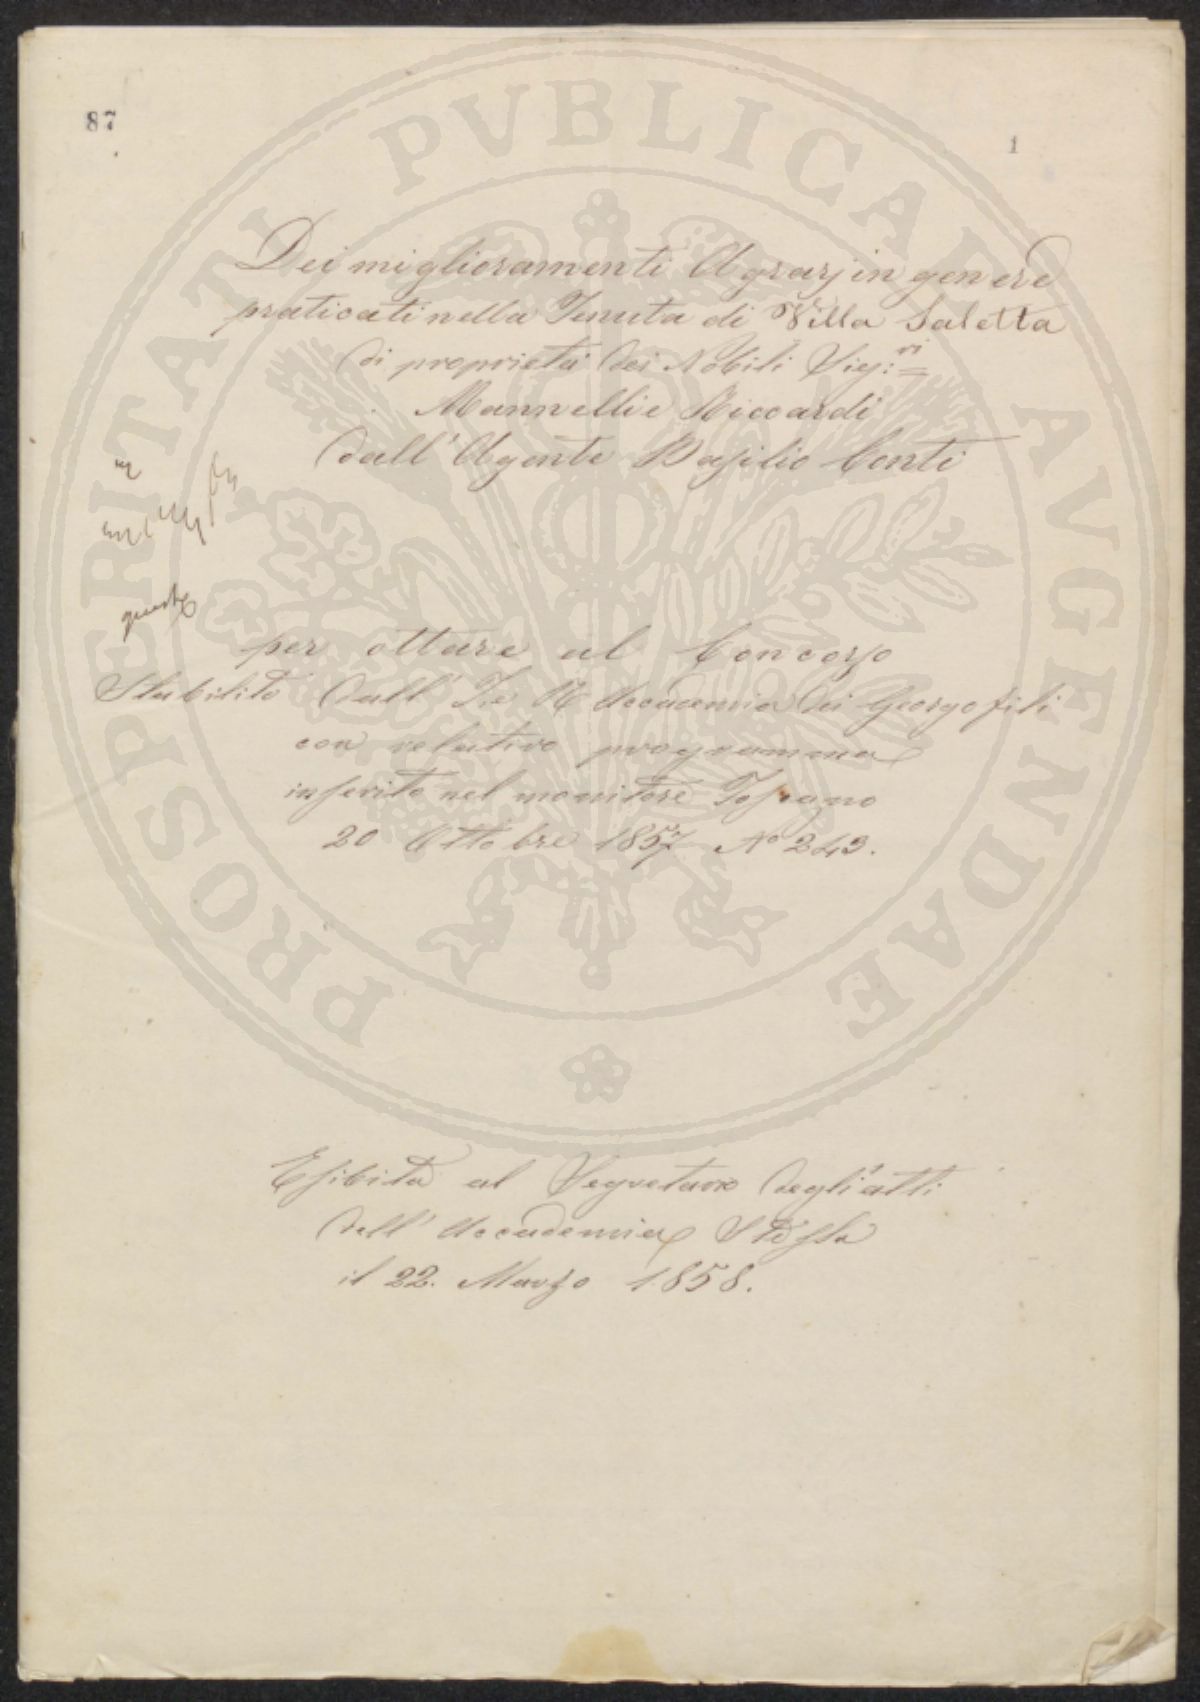 87
1
PROSPERITATI PVBLICAE AVGENDAE
Dei miglioramenti Agrarj in genere
praticati nella Tenuta di Villa Saletta
di proprietà dei Nobili Sig:ri
Mannelli e Riccardi
dall' Agente Basilio Conti
per ottare al Concorso
Stabilito dall' I. e R. Accademia dei Georgofili
con relativo programma
inserito nel monitore Toscano
20 Ottobre 1857 No 243.
Esibita al Segretario degli atti
dell' Accademia Stessa
il 22. Marzo 1858.